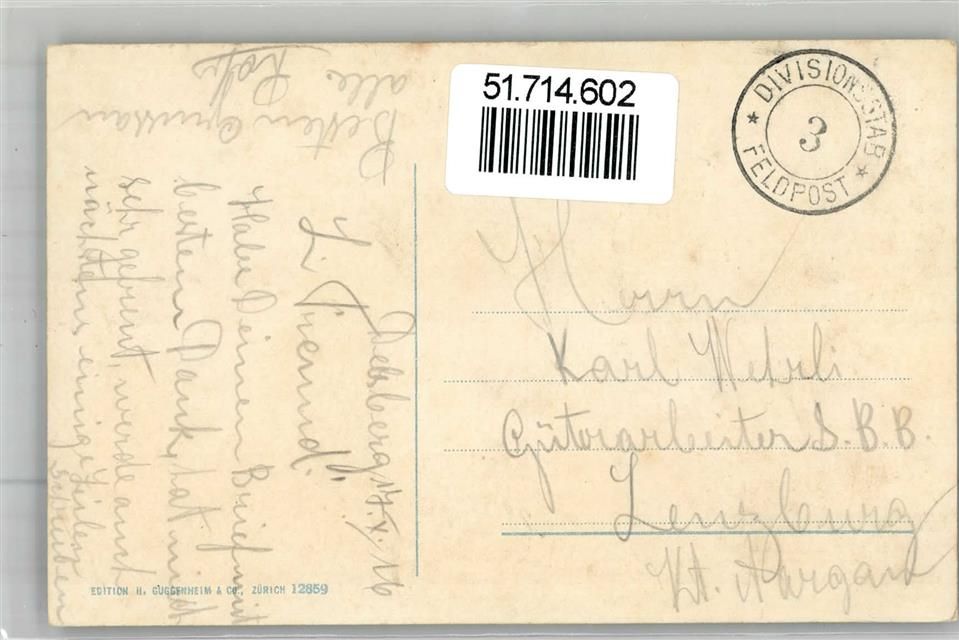 51.714.602
DIVISIONSSTAB
3
FELDPOST
Herrn
Karl Wehrli
Güterarbeiter S.B.B.
Lenzburg
Kt. Aargau
Delsberg 17.V.16
L. Freund!
Habe Deinen Brief mit
besten Dank, hat mich
sehr gefreut, werde auch
nächstens einige Zeilen
schreiben
Besten Grüssen
alle
EDITION H. GUGGENHEIM & CO., ZÜRICH 12859